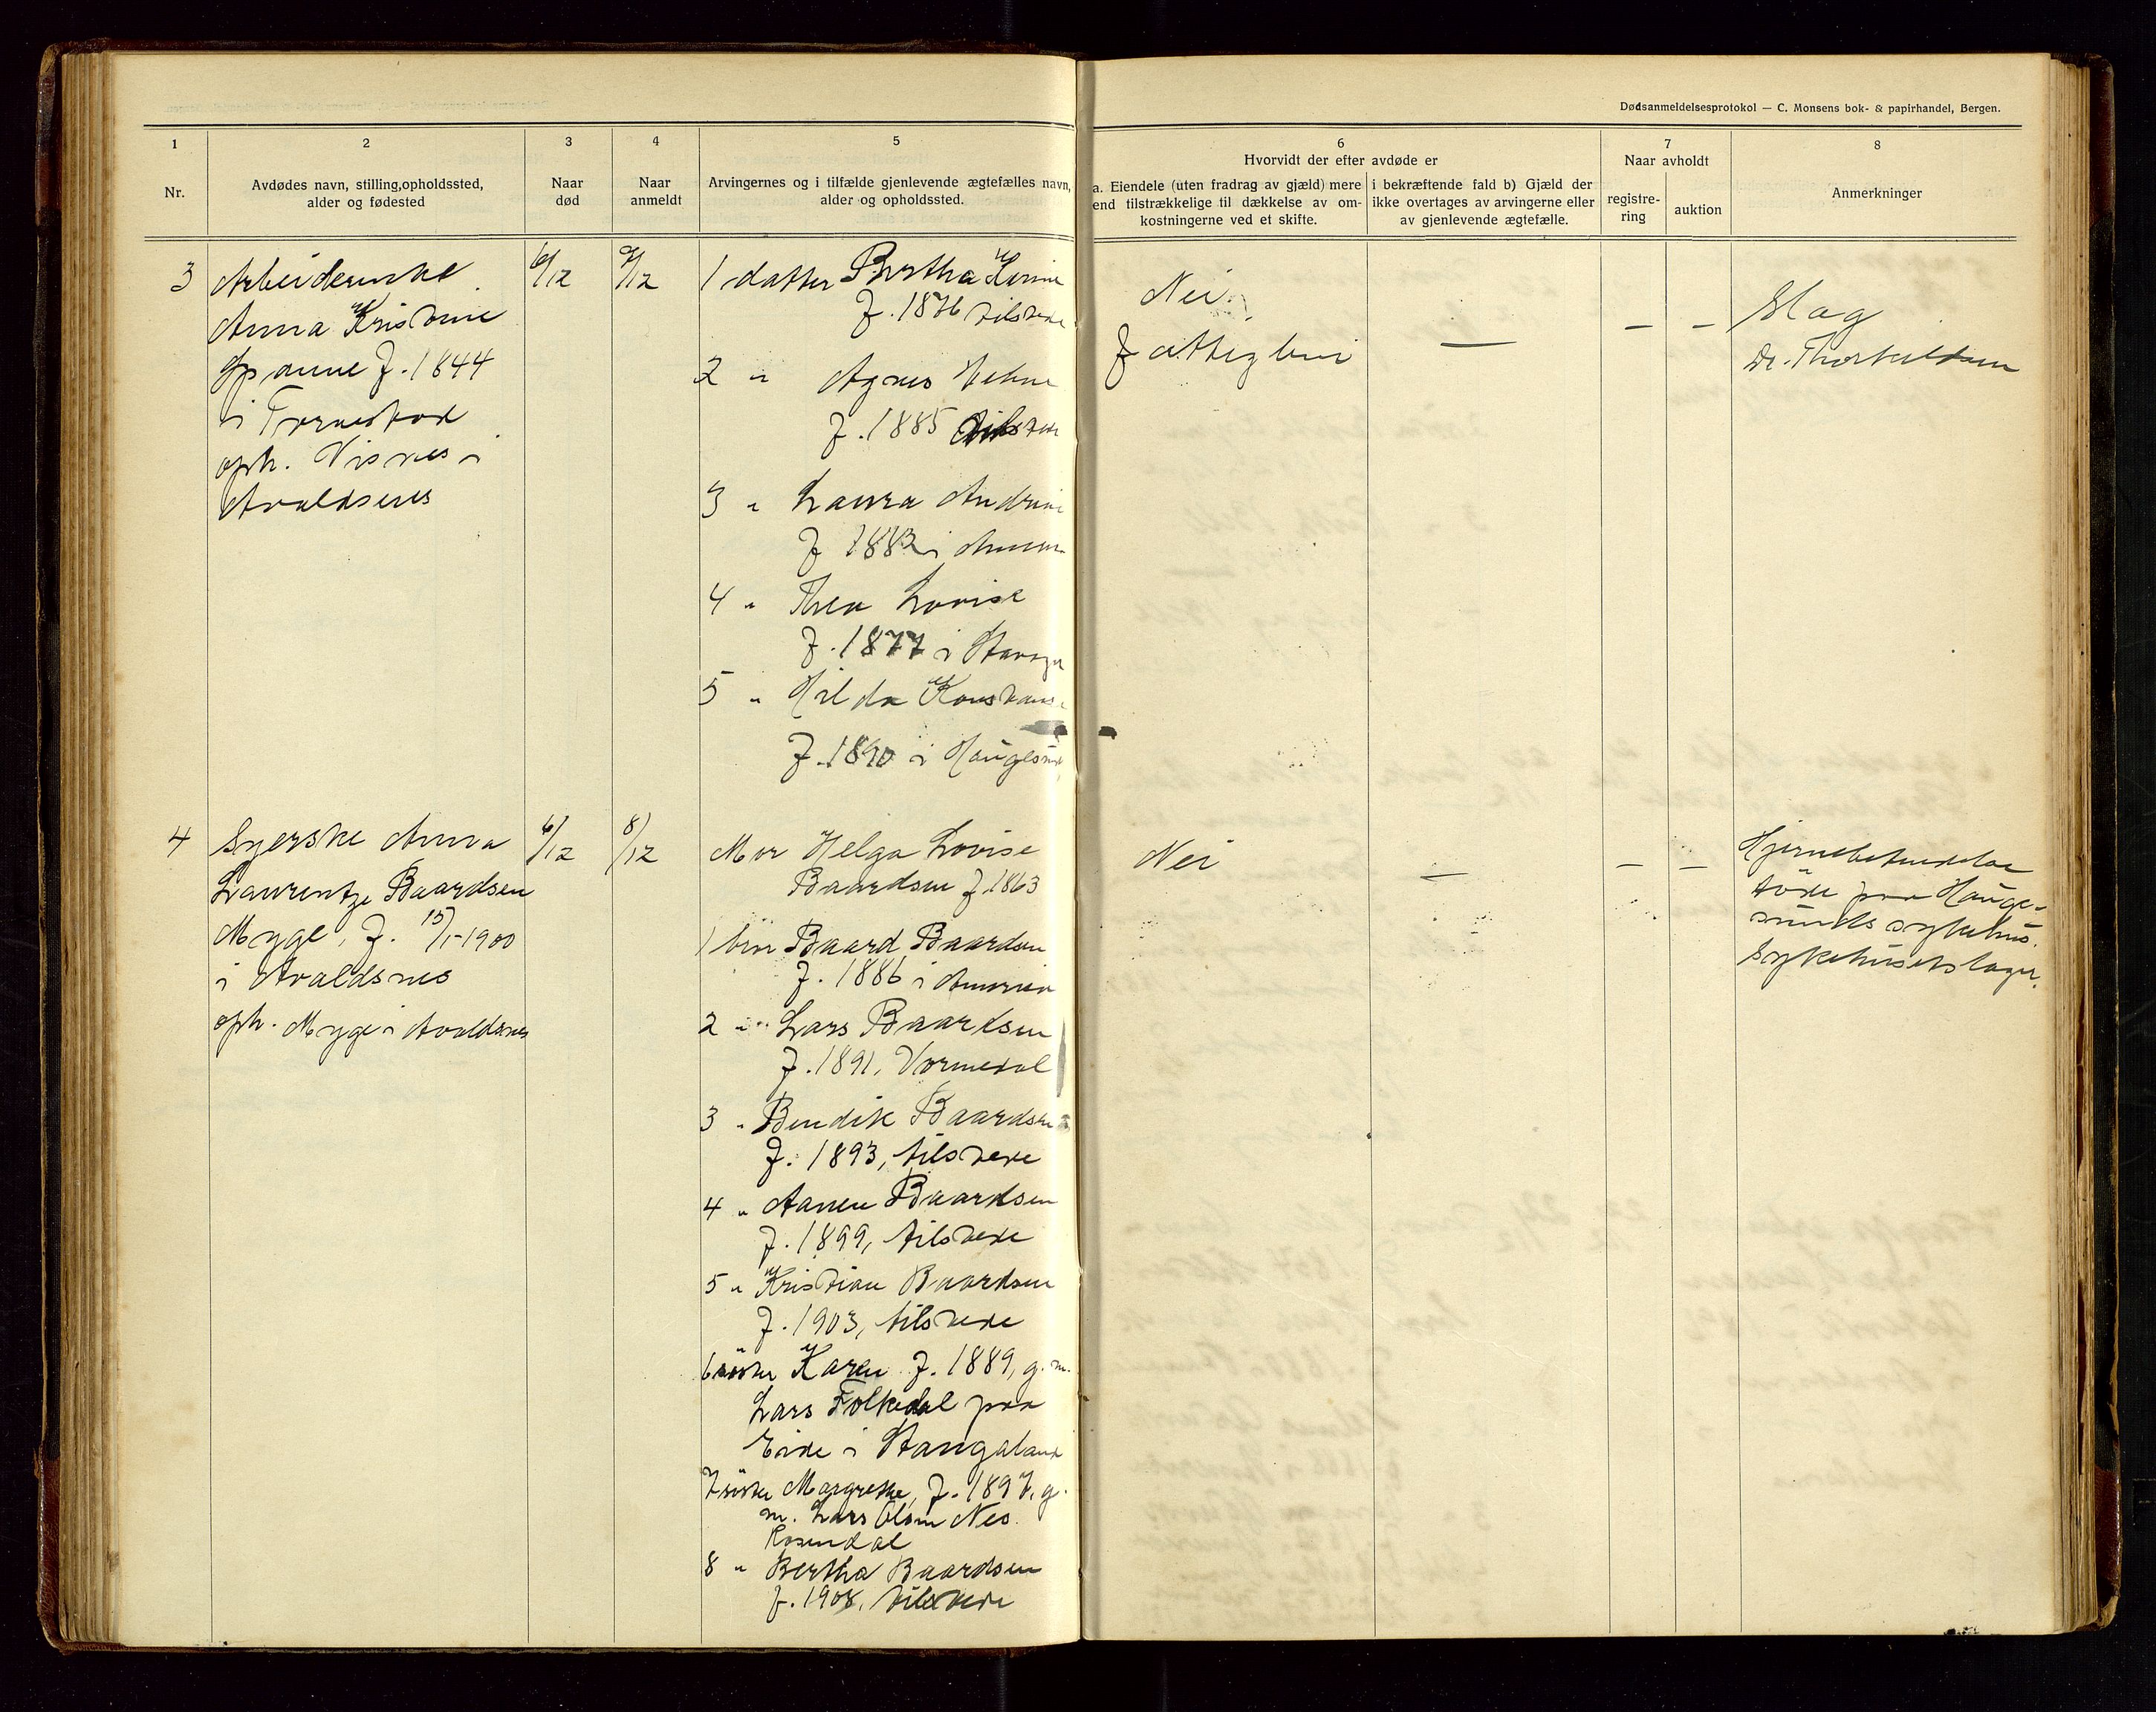 Dødsanmeldelsesprotokol — C. Monsens bok- & papirhandel, Bergen.
1
2
3
4
5
6
7
8
Nr.
Avdødes navn, stilling, opholdssted,
alder og fødested
Naar
død
Naar
anmeldt
Arvingernes og i tilfælde gjenlevende ægtefælles navn,
alder og opholdssted.
Hvorvidt der efter avdøde er
a. Eiendele (uten fradrag av gjæld) mere
end tilstrækkelige til dækkelse av om-
kostningerne ved et skifte.
i bekræftende fald b) Gjæld der
ikke overtages av arvingerne eller
av gjenlevende ægtefælle.
Naar avholdt
registre-
ring
auktion
Anmerkninger
3
Arbeiderenke
Anna Kristine
Spanne f. 1844
i Tornestvox
oph. Visnes i
Avaldsnes
6/12
9/12
1 datter Bertha
f. 1876 tilstede
2 " Agnes
f. 1885 tilstede
3 " Laura Andrine
f 1883 i
4 " Thea Lovise
f. 1877 i Stavanger
5 " Hilda Konstanse
f. 1890 i Haugesund
Nei
fattiglem
—
— —
Slag
Dr. Thorkildsen
4
Syerske Anna
Laurentze Baardsen
Mygе, f. 15/1-1900
i Avaldsnes
oph. Myge i Avaldsnes
6/12
8/12
Mor Helga Lovise
Baardsen f. 1863
1 bror Baard Baardsen
f. 1886 i Amerika
2 " Lars Baardsen
f. 1891, Vormedal
3 " Bendik Baardsen
f. 1893, tilstede
4 " Aanen Baardsen
f. 1899, tilstede
5 " Kristian Baardsen
f. 1903, tilstede
6 søster Karen f. 1889, g. m.
Lars Folkedal paa
Eide i Stangaland
7 søster Margrethe, f. 1897, g.
m. Lars Olsen Nes
Rosendal
8 " Bertha Baardsen
f. 1908, tilstede
Nei
—
— —
Hjernebetændelse
døde paa Hauge-
sunds sykehus.
Sykehusets læge.